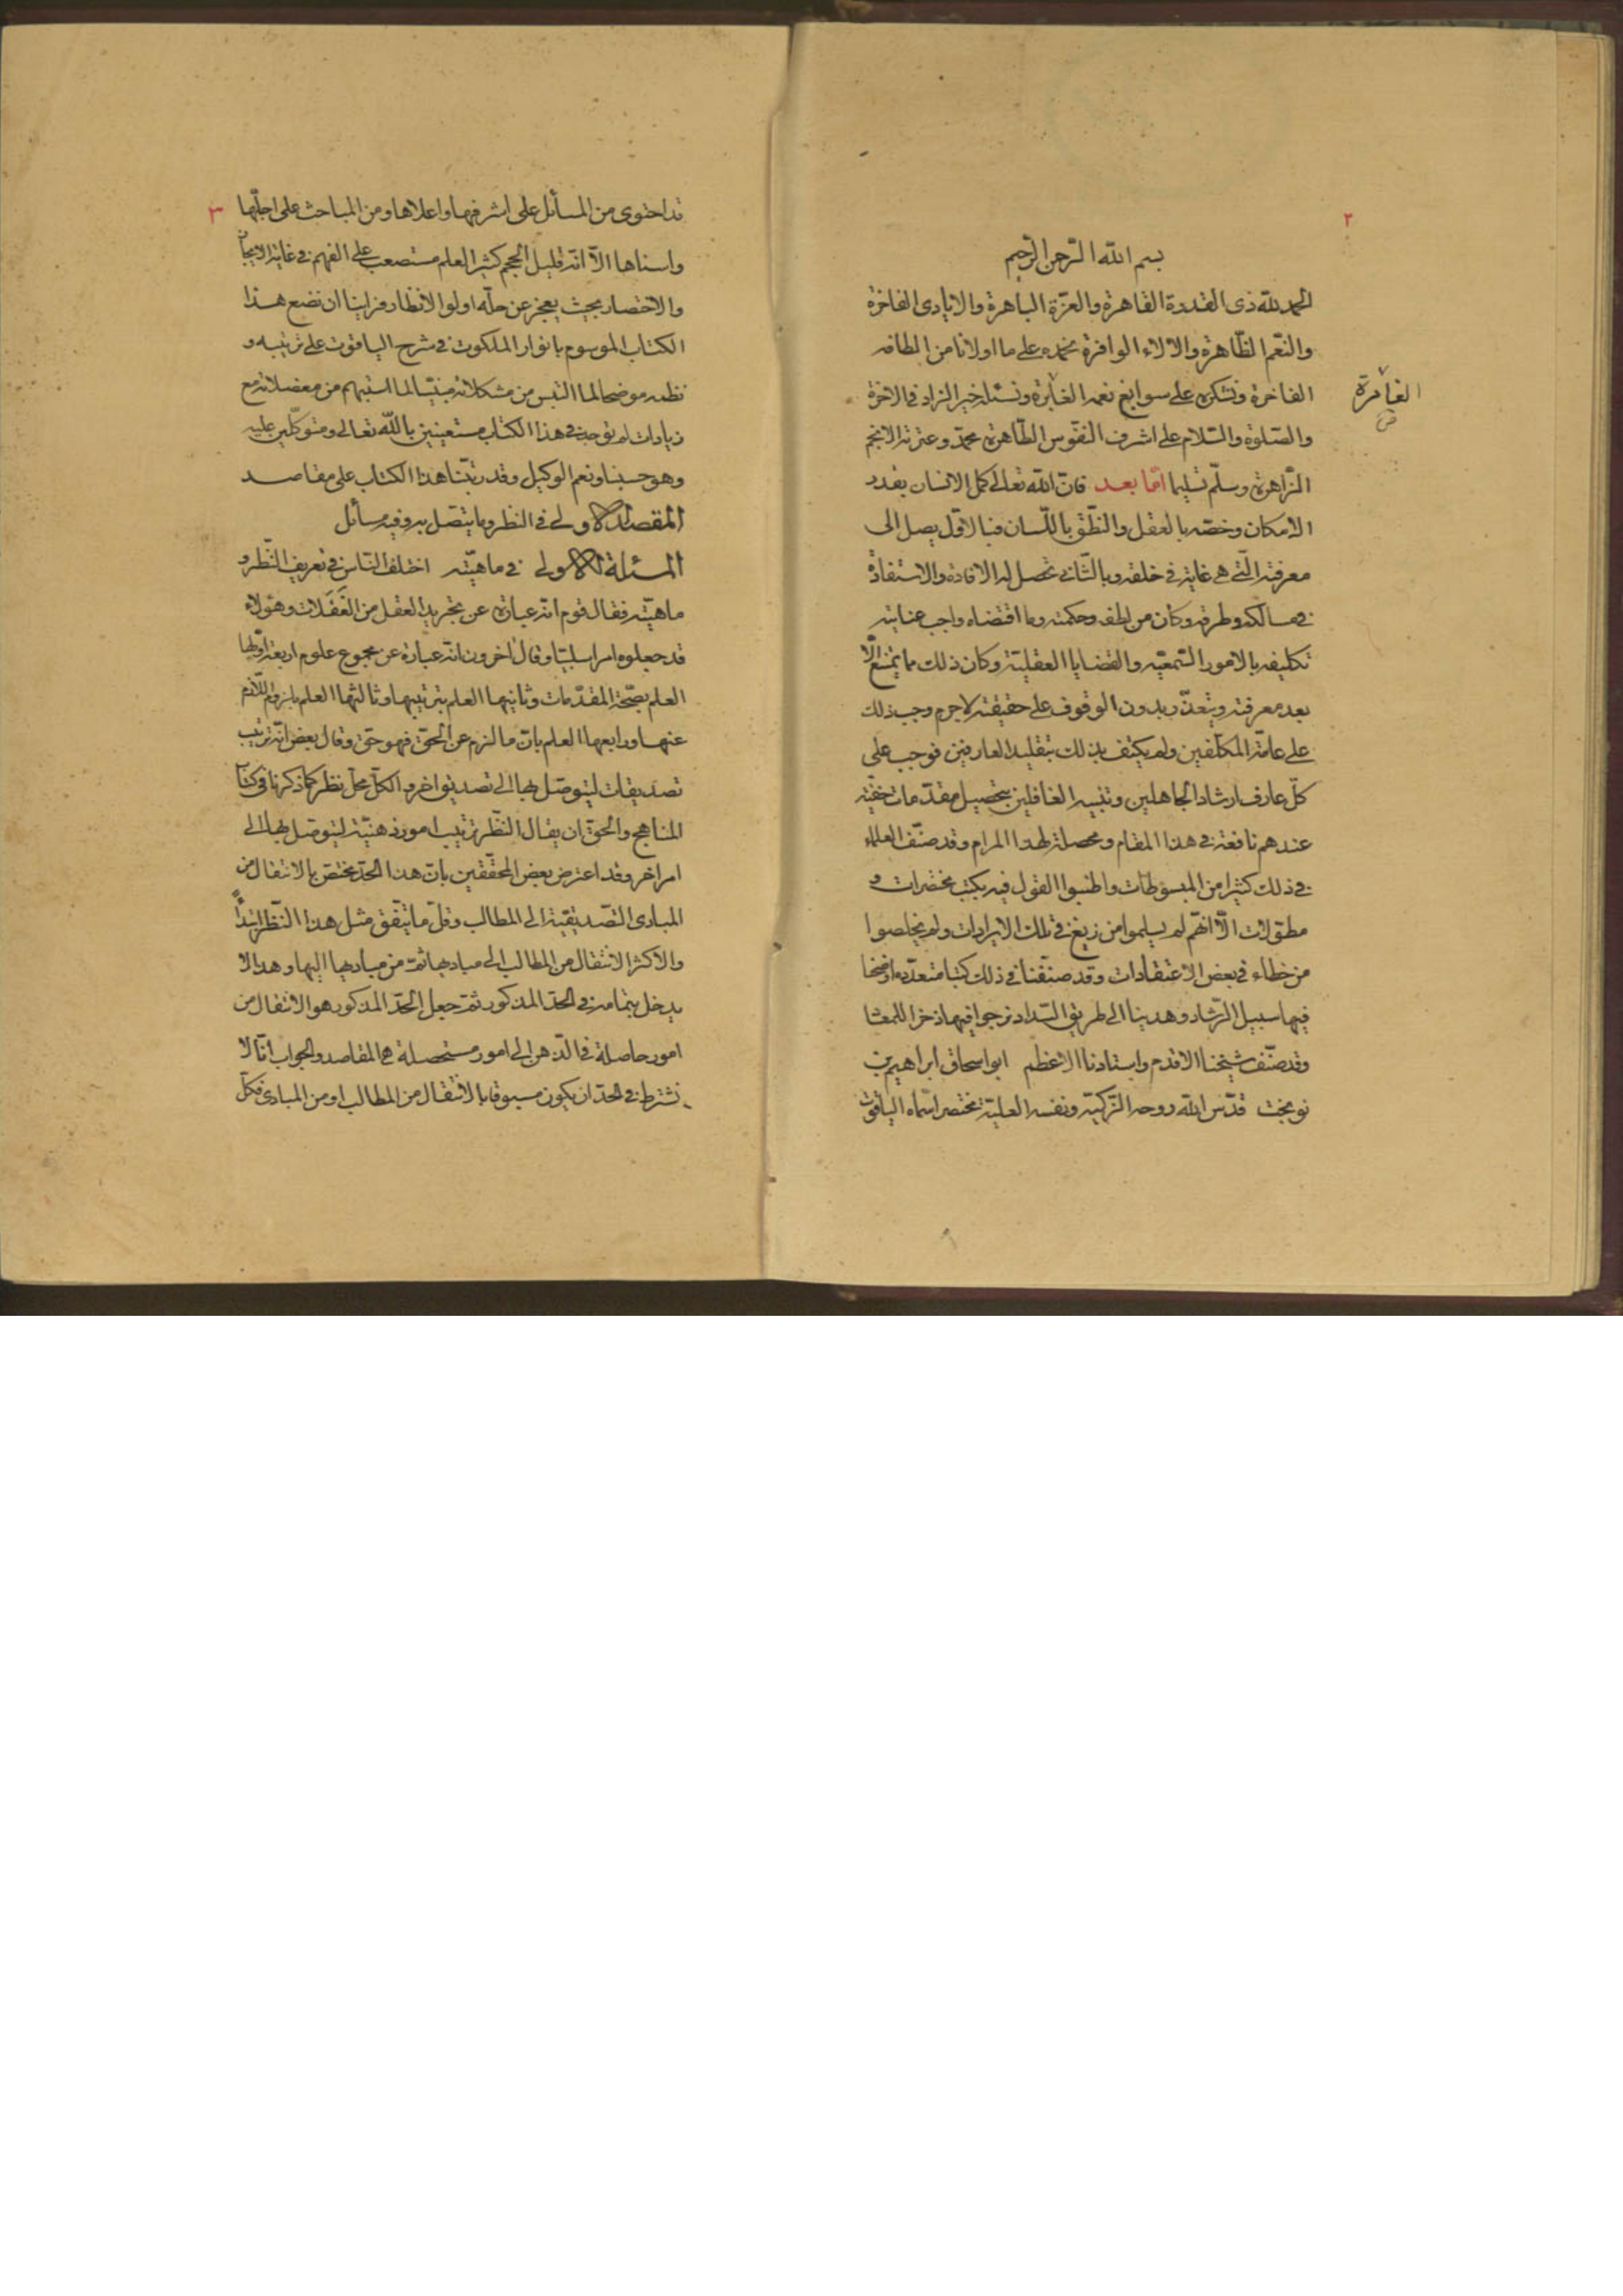 ٢
بسم الله الرحمن الرحيم
الحمد لله ذى القدرة القاهرة والعزّة الباهرة والايادى الفاخرة
والنّعم الظّاهرة والالاء الوافرة نحمده على ما اولانا من الطافه
الفاخرة ونشكره على سوابغ نعمه الغابرة ونسئله خير الزاد فى الاخرة
الغامرة
والصّلوة والسّلام على اشرف النفوس الطّاهرة محمّد وعترته الانجم
الزّاهرة وسلّم تسليما امّا بعد فانّ الله تعالى كمّل الانسان بقدر
الامكان وخصّه بالعقل والنّطق باللّسان فبالاوّل يصل الى
معرفته الّتى هى غاية فى خلقه وبالثّانى تحصل له الافادة والاستفادة
فى مسالكه وطرقه وكان من لطفه وحكمته وما اقتضاه واجب عنايته
تكليفه بالامور السّمعيّه والقضايا العقليّة وكان ذلك مما يمتنع الّا
بعد معرفته ويتعذّر بدون الوقوف على حقيقته لاجرم وجب ذلك
على عامّة المكلّفين ولم يكتف بذلك بتقليد العارفين فوجب على
كلّ عارف ارشاد الجاهلين وتنبيه الغافلين بتحصيل مقدّمات خفيّه
عندهم نافعة فى هذا المقام ومحصلة لهذا المرام وقد صنّف العلماء
فى ذلك كثيرا من المبسوطات واطنبوا القول فيه بكتب مختصرات و
مطوّلات الّا انّهم لم يسلموا من زيغ فى تلك الايرادات ولم يخلصوا
من خطاء فى بعض الاعتقادات وقد صنّفنا فى ذلك كتبا متعدّده اوضحنا
فيها سبيل الرّشاد وهدينا الى طريق السّداد نرجوا فيها ذخرا للمعا
وقد صنّف شيخنا الاقدم واستادنا الاعظم ابو اسحاق ابراهيم بن
نوبخت قدّس الله روحه الزّكيّه ونفسه العليّة مختصرا سمّاه الياقوت
٣
قد احتوى من المسائل على اشرفها واعلاها ومن المباحث على اجلّها
واسناها الّا انّه قليل الحجم كثير العلم مستصعب على الفهم فى غاية الايجا
والاختصار بحيث يعجز عن حلّه اولوا الانظار فراينا ان نضع هذا
الكتاب الموسوم بانوار الملكوت فى شرح الياقوت على ترتيبه و
نظمه موضحا لما التبس من مشكلاته مبيّنا لما استبهم من معضلاته مع
زيادات لم توجد فى هذا الكتاب مستعينين بالله تعالى ومتوكّلين عليه
وهو حسبنا ونعم الوكيل وقد رتّبنا هذا الكتاب على مقاصد
المقصد الاولى فى النظر وما يتصل به وفيه مسائل
المسئلة الاولى فى ماهيّته اختلف النّاس فى تعريف النّظر و
ماهيّته فقال قوم انّه عبارة عن تجريد العقل من الغفلات وهؤلاء
قد جعلوه امرا سلبيّا وقال اخرون انّه عبارة عن مجموع علوم اربعة اوّلها
العلم بصحّة المقدّمات وثانيها العلم بترتيبها وثالثها العلم بلزوم اللّازم
عنها ورابعها العلم بانّ ما لزم عن الحقّ فهو حقّ وقال بعض انّه ترتيب
تصديقات ليتوصّل بها الى تصديق اخر والكلّ محلّ نظر كما ذكرنا فى كتا
المناهج والحقّ ان يقال النّظر ترتيب امور ذهنيّة ليتوصّل بها الى
امر اخر وقد اعترض بعض المحقّقين بانّ هذا الحدّ مختصّ بالانتقال من
المبادى التّصديقيّة الى المطالب وقلّ ما يتّفق مثل هذا النّظر ابتدأً
والاكثر الانتقال من المطالب الى مباديها ثمّ من مباديها اليها وهذا لا
يدخل بتمامه فى الحدّ المذكور ثمّ جعل الحدّ المذكور هو الانتقال من
امور حاصلة فى الذّهن الى امور مستحصلة هى المقاصد والجواب انّا لا
نشترط فى الحدّ ان يكون مسبوقا بالانتقال من المطالب او من المبادى فكلّ